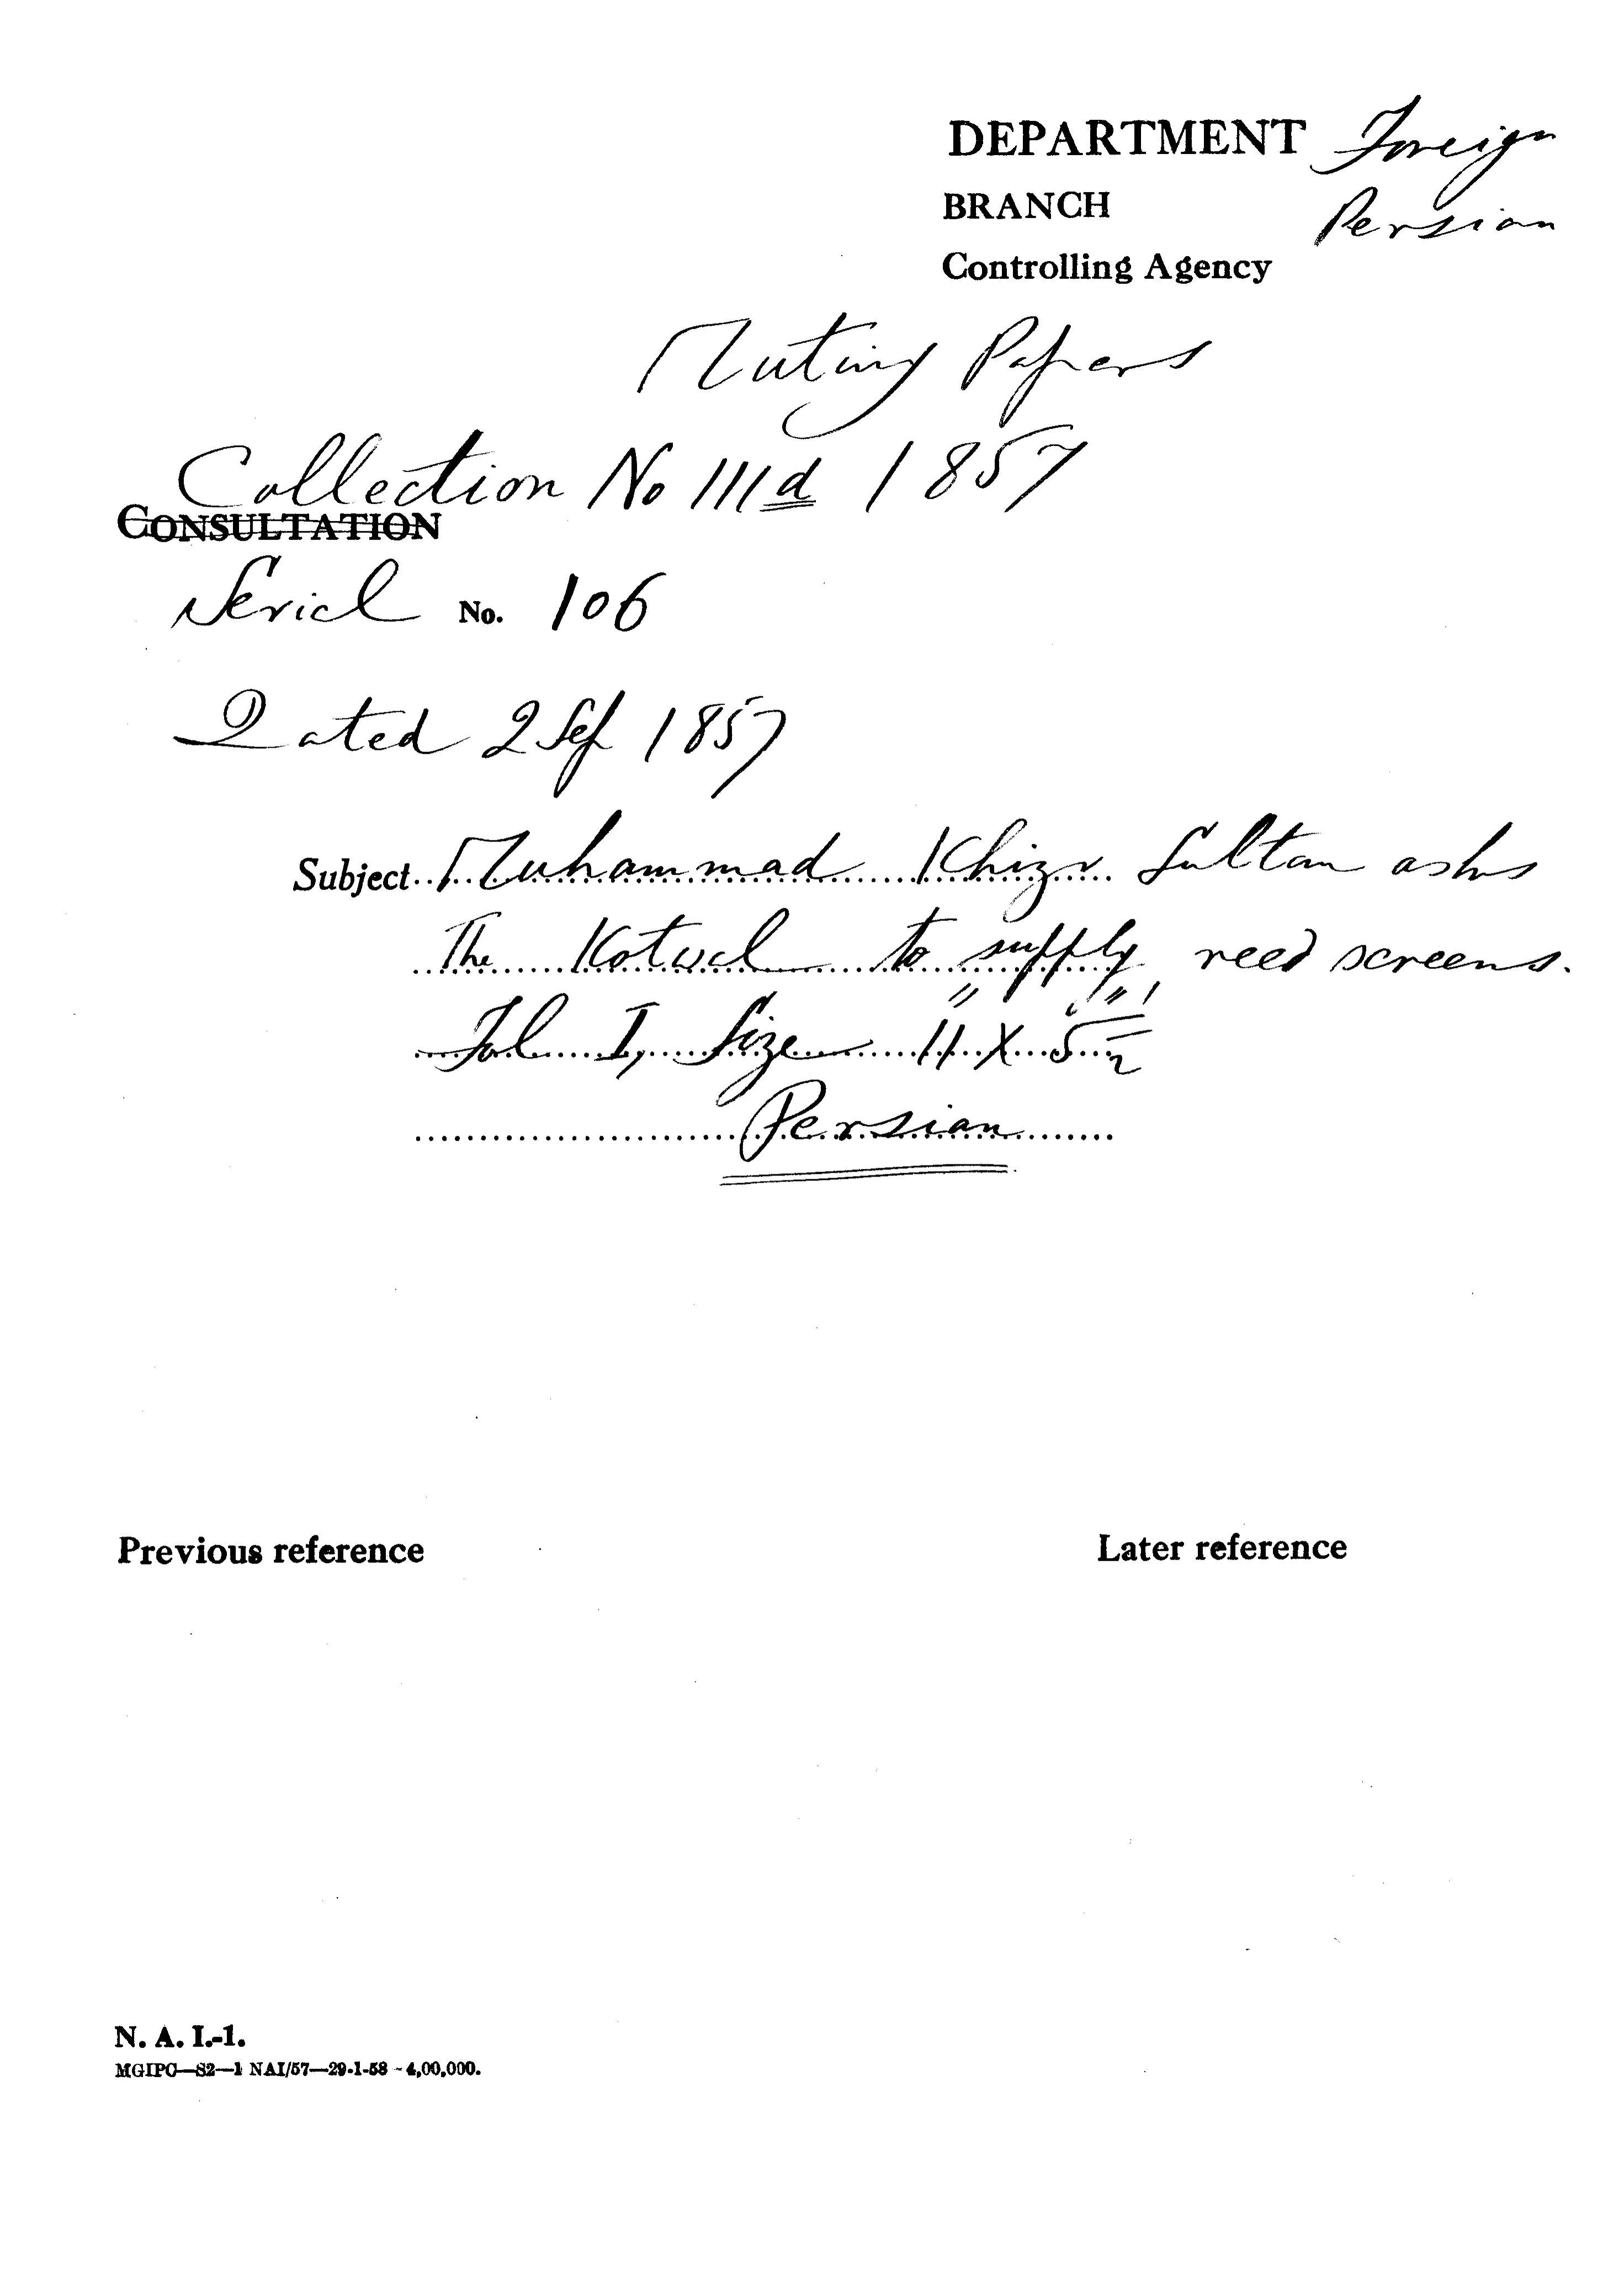 DEPARTMENT Foreign
BRANCH Persian
Controlling Agency
Mutiny Papers
Collection No IIId 1857
CONSULTATION
Serial No. 106
Dated 2 Sep 1857
Subject Muhammad Khizr Sultan asks
The Kotwal to supply reed screens.
Fol I, Size 11" X 5 1/2"
Persian
Previous reference Later reference
N. A. I.-1.
MGIPC—S2—1 NAI/57—29-1-58 - 4,00,000.